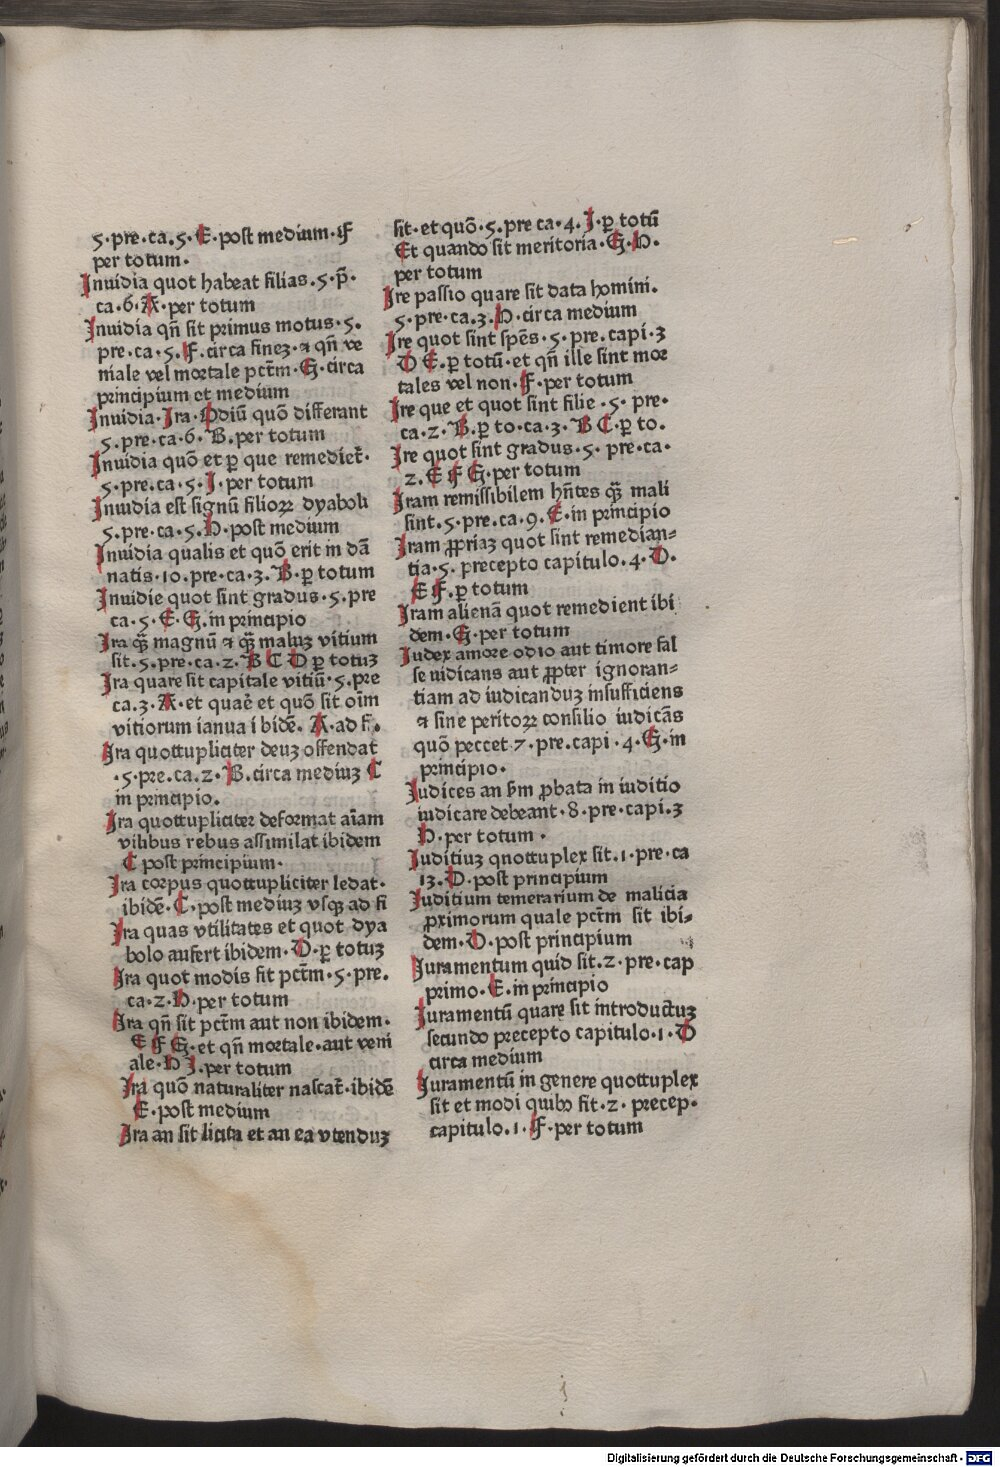 5·pre·ca·5·E·post medium·iſ
per totum·
Inuidia quot habeat filias·5·p̄·
ca·6·A·per totum
Inuidia qñ ſit primus motus·5·
pre·ca·5·F·circa finez·⁊ qñ ve
niale vel mortale pctm̄·G·circa
principium et medium
Inuidia·Ira·Odiū quō differant
5·pre·ca·6·B·per totum
Inuidia quō et ꝑ que remediet̄·
5·pre·ca·5·I·per totum
Inuidia eſt ſignū filioꝝ dyaboli
5·pre·ca·5·H·poſt medium
Inuidia qualis et quō erit in dā
natis·10·pre·ca·3·B·ꝑ totum
Inuidie quot ſint gradus·5·pre
ca·5·E·G·in principio
Ira qꝫ̄ magnū ⁊ qꝫ̄ maluꝫ vitium
ſit·5·pre·ca·2·B C D ꝑ totuꝫ
Ira quare ſit capitale vitiū·5·pre
ca·3·A·et quaē et quō ſit oīm
vitiorum ianua ibidē·A·ad fi·
Ira quottupliciter deuꝫ offendat
·5·pre·ca·2·B·circa mediuꝫ C
in principio·
Ira quottupliciter deformat aīam
vilibus rebus aſſimilat ibidem
C poſt principium·
Ira corpus quottupliciter ledat·
ibidē·C·poſt mediuꝫ vſqꝫ ad fi
Ira quas vtilitates et quot dya
bolo aufert ibidem·D·ꝑ totuꝫ
Ira quot modis ſit pctm̄·5·pre·
ca·2·H·per totum
Ira qñ ſit pctm̄ aut non ibidem·
E F G·et qñ mortale·aut veni
ale·H I·per totum
Ira quō naturaliter naſcat̄·ibidē
E·poſt medium
Ira an ſit licita et an ea vtenduꝫ
ſit·et quō·5·pre ca·4·I·ꝑ totū
Et quando ſit meritoria·G·H·
per totum
Ire paſſio quare ſit data homini·
5·pre·ca·3·H·circa medium
Ire quot ſint ſpēs·5·pre·capi·3
D E·ꝑ totū·et qñ ille ſint mor
tales vel non·F·per totum
Ire que et quot ſint filie·5·pre·
ca·2·B·ꝑ to·ca·3·B C·ꝑ to·
Ire quot ſint gradus·5·pre·ca·
2·E F G·per totum
Iram remiſſibilem hñtes qꝫ̄ mali
ſint·5·pre·ca·9·E·in principio
Iram ꝓpriaꝫ quot ſint remedian⸗
tia·5·precepto capitulo·4·D·
E F·ꝑ totum
Iram alienā quot remedient ibi
dem·G·per totum
Iudex amore odio aut timore fal
ſe iudicans aut ꝓpter ignoran⸗
tiam ad iudicanduꝫ inſufficiens
⁊ ſine peritoꝝ conſilio iudicās
quō peccet 7·pre·capi·4·G·in
principio·
Iudices an ẜm ꝓbata in iuditio
iudicare debeant·8·pre·capi·3
H·per totum·
Iuditiuꝫ qnottuplex ſit·1·pre·ca
13·D·poſt principium
Iuditium temerarium de malicia
ꝓximorum quale pctm̄ ſit ibi⸗
dem·D·poſt principium
Iuramentum quid ſit·2·pre·cap
primo·E·in principio
Iuramentū quare ſit introductuꝫ
ſecundo precepto capitulo·1·D
circa medium
Iuramentū in genere quottuplex
ſit et modi quibꝰ fit·2·precep·
capitulo·1·F·per totum
Digitalisierung gefördert durch die Deutsche Forschungsgemeinschaft · DFG